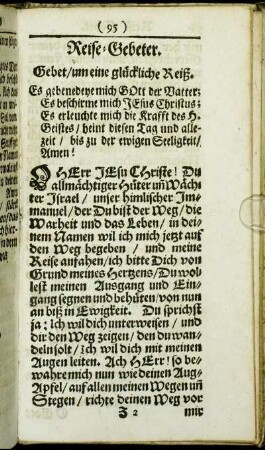 ( 95 )
Reise-Gebeter.
Gebet/um eine glückliche Reiß.
Es gebenedeye mich GOtt der Vatter;
Es beschirme mich JEsus Christus;
Es erleuchte mich die Krafft des H.
Geistes / heint diesen Tag und alle-
zeit / bis zu der ewigen Seeligkeit /
Amen!
O HErr JEsu Christe! Du
allmächtiger Hüter uñ Wäch-
ter Israel / unser himlischer Im-
manuel / der Du bist der Weg / die
Warheit und das Leben / in dei-
nem Namen wil ich mich jetzt auf
den Weg begeben / und meine
Reise anfahen / ich bitte Dich von
Grund meines Hertzens / Du wol-
lest meinen Ausgang und Ein-
gang segnen und behüten / von nun
an biß in Ewigkeit. Du sprichst
ja: Ich wil dich unterweisen / und
dir den Weg zeigen / den du wan-
deln solt / Ich wil dich mit meinen
Augen leiten. Ach HErr! so be-
wahre mich nun wie deinen Aug-
Apfel / auf allen meinen Wegen uñ
Stegen / richte deinen Weg vor
J 2 mir